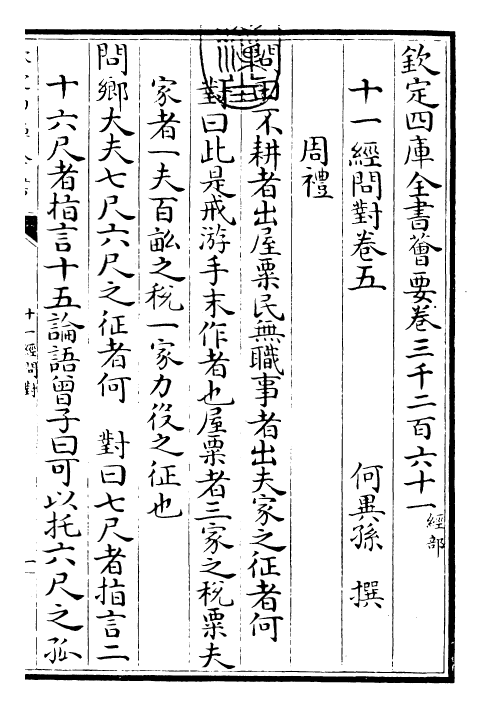 欽定四庫全書薈要卷三千二百六十一 經部
十一經問對卷五
何異孫 撰
周禮
問田不耕者出屋粟民無職事者出夫家之征者何
對曰此是戒游手末作者也屋粟者三家之税粟夫
家者一夫百畝之税一家力役之征也
問鄉大夫七尺六尺之征者何 對曰七尺者指言二
十六尺者指言十五論語曾子曰可以托六尺之孤
十一經問對
一